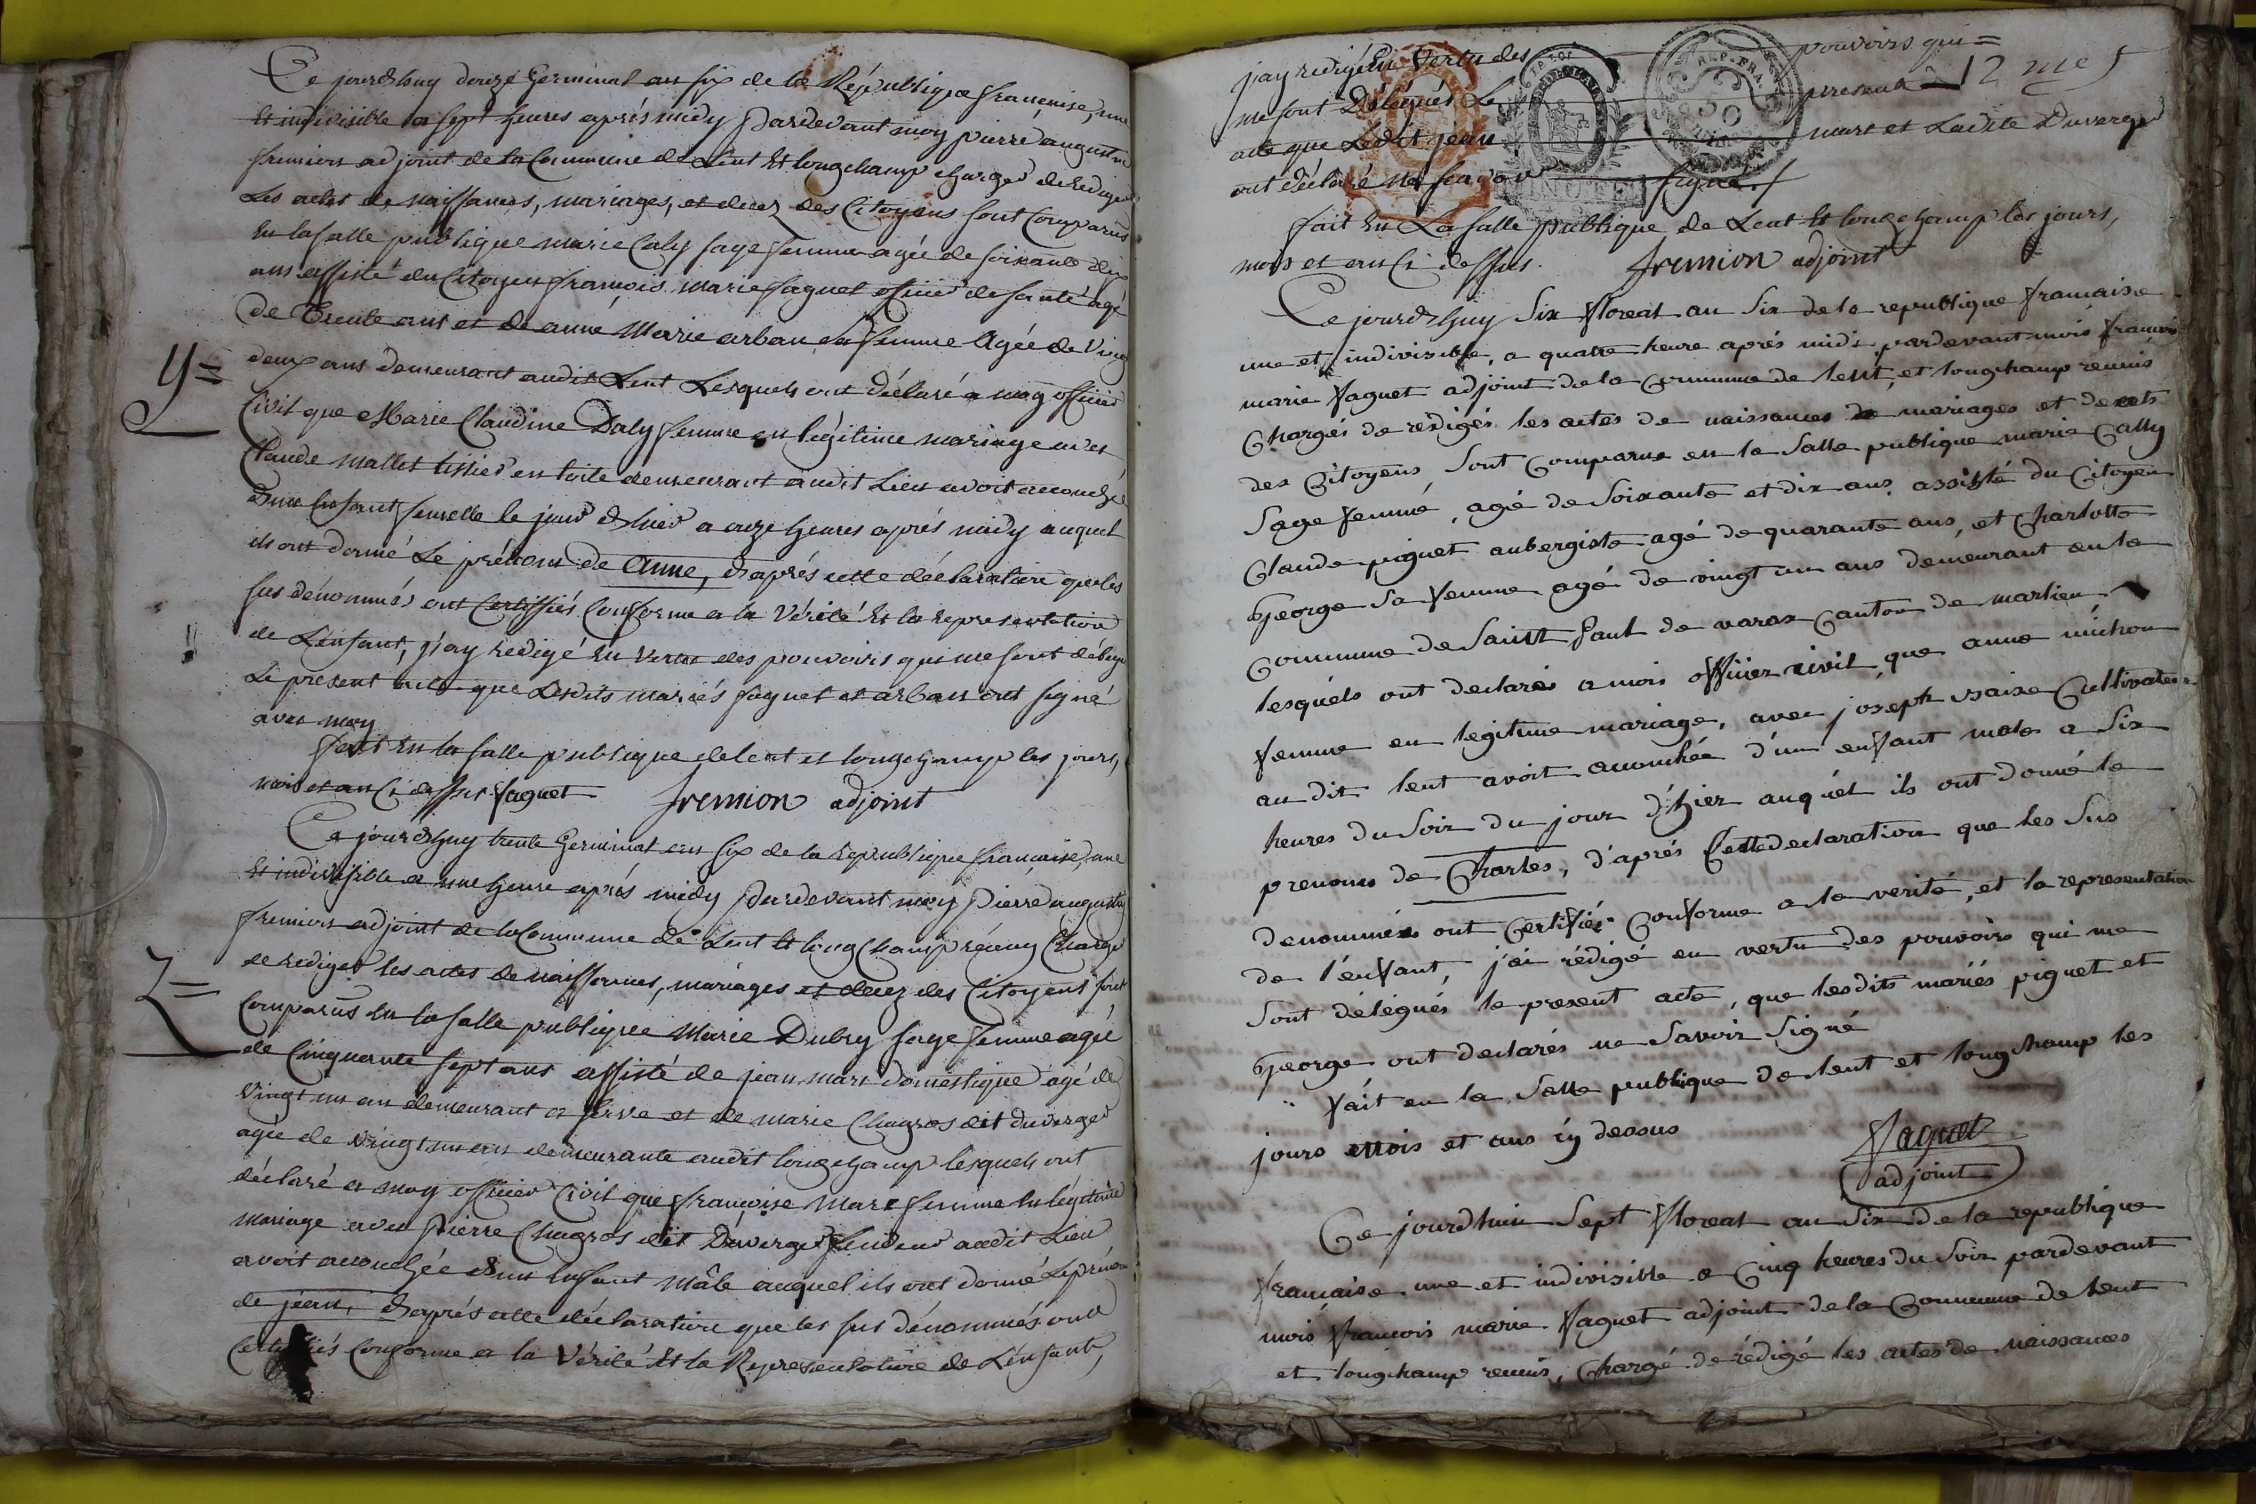 Ce jourd'huy douze Germinal an six de la République françoise, une
Et indivisible a sept heures après midy Pardevant moy pierre augustin
fremion adjoint de la Commune de Lent Et longchamp chargé de Rediger
Les actes de naissances, mariages, et decez des Citoyens sont Comparus
En la salle publique marie Caly sage femme agée de soixante dix
ans assisté du Citoyen françois marie faguet officier de santé agé
de Trente ans et de anne Marie arban sa femme Agée de Vingt
deux ans demeurant audit Lent Lesquels ont déclaré a moy officier
Civil que Marie Claudine Daly femme en légitime mariage avec
Claude mallet tissier en toile demeurant audit Lieu avoit accouchée
d'une Enfant femelle le jour d'hier a onze heures après midy auquel
ils ont donné Le prénom de Anne, d'après cette déclaration que les
sus dénommés ont Certiffiés Conforme a la Vérité Et la représentation
de L'enfant, j'ay redigé En Vertu des pouvoirs qui me sont délégué
Le present acte que Lesdits mariés faguet et arban ont signé
avec moy
fait En la salle publique de lent et longchamp les jours,
mois et an Ci dessus faguet fremion adjoint
Ce jourd'huy trente Germinal an six de la republique françoise, une
Et indivisible a une heure après midy Pardevant moy Pierre augustin
fremion adjoint de la Commune de Lent Et long Champ réuny Chargé
de rediger les actes de naissances, mariages et decez des Citoyens sont
Comparus En la salle publique Marie Dubry sage femme agée
de Cinquante sept ans assisté de jean marc domestique agé de
vingt un an demeurant a Serva et de marie Chagros dit duverger
agée de vingt un an demeurante audit longchamp lesquels ont
déclaré a moy officier Civil que françoise Marc femme En légitime
mariage avec Pierre Chagros dit Duverger audit Lieu
avoit accouchée d'un Enfant mâle auquel ils ont donné Le prénom
de jean, d'après cette déclaration que les sus dénommés ont
Certiffiés Conforme a la Vérité Et la Représentation de L'enfant,
y=
Z=
j'ay redigé En Vertu des pouvoirs qui=
me sont Délégués Le present 12 me 5
acte que Ledit jean marc et Ladite Duverger
ont déclaré ne savoir signé./
fait En La salle publique de Lent Et longchamp les jours,
mois et an Ci dessus. fremion adjoint
REP. FRA.
50
Ce jourd'huy Six floreal an Six de la republique francaise
une et indivisible, a quatre heure aprés midi pardevant moi francois
marie faguet adjoint de la Commune de lent, et longchamp reunis
Chargés de rédigés les actes de naissances de mariages et decets
des Citoyens, Sont Comparus en la Salle publique marie Cally
Sage femme, agé de Soixante et dix ans, assisté du Citoyen
Claude piguet aubergiste agé de quarante ans, et Charlotte
George Sa femme agé de vingt un ans demeurant en la
Commune de Saint Paul de varax Canton de marlieu
lesquels ont declarés a moi officier civil que anne michon
femme en legitime mariage, avec joseph vzaise Cultivateur
au dit lent avoit accouchée d'un enfant male a Six
heures du Soir du jour d'hier auquel ils ont donné le
prenoms de Charles, d'aprés Cette declaration que les Sus
denommés ont Certifiés Conforme a la verité, et la representation
de l'enfant, j'ai rédigé en vertu des pouvoirs qui me
Sont délégués le present acte, que lesdits mariés piguet et
George ont declarés ne Savoir Signé
fait en la Salle publique de lent et longchamp les
jours mois et ans cy dessus
faguet
adjoint
Ce jourd'hui Sept floreal an Six de la republique
francaise une et indivisible a Cinq heures du Soir pardevant
moi francois marie faguet adjoint de la Commune de lent
et longchamp reunis, Chargé de rédigé les actes de naissances